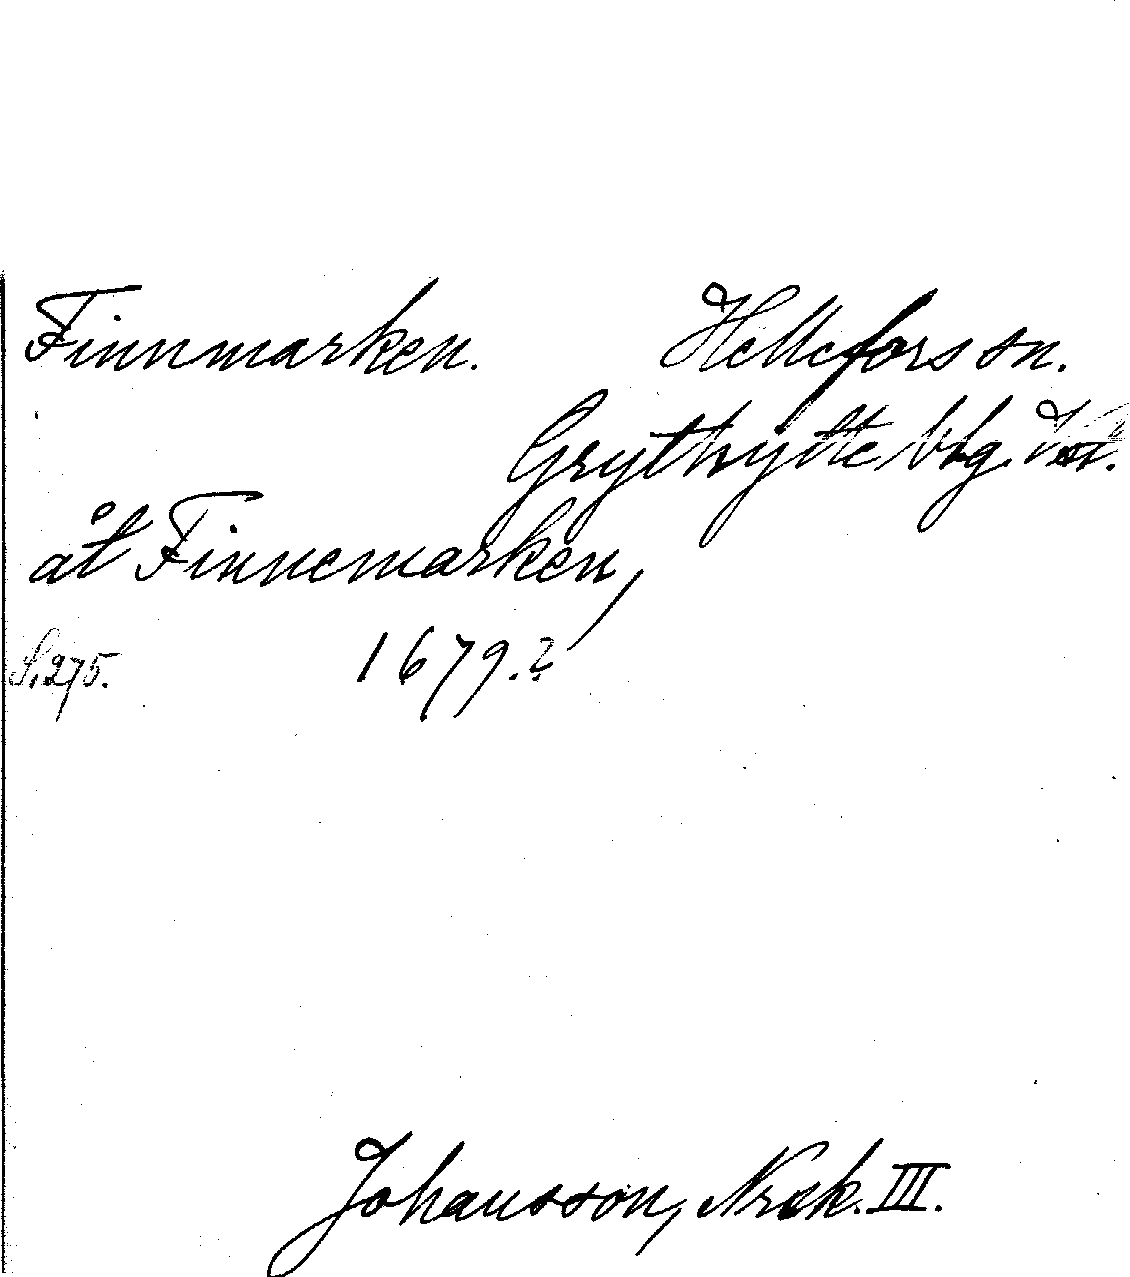 Finnmarken. Hellefors sn.
Grythytte blg.
åt Finnemarken,
S. 275. 1679.?
Johansson, Nrck. III.